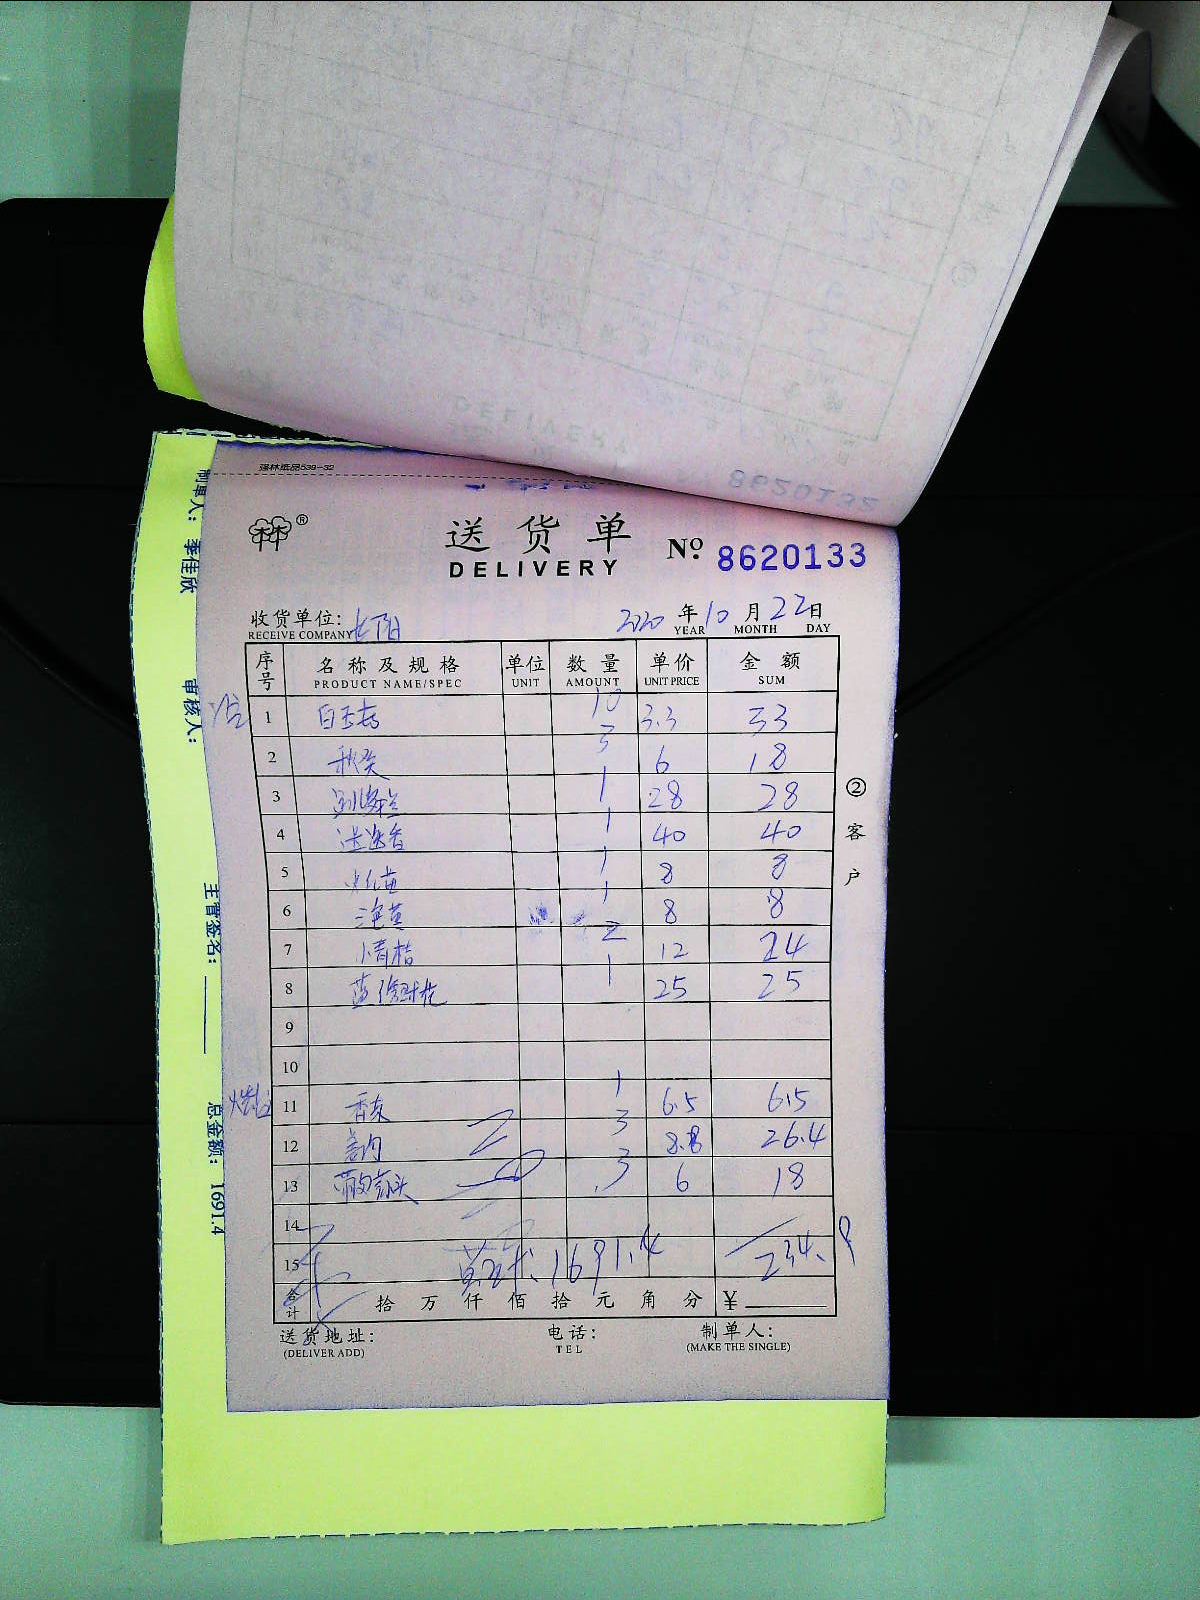 强林纸品539-32
送货单 № 8620133
DELIVERY
收货单位: 长阳 2020 年 10 月 22 日
RECEIVE COMPANY YEAR MONTH DAY
序号 名称及规格 单位 数量 单价 金额
PRODUCT NAME/SPEC UNIT AMOUNT UNIT PRICE SUM
1 白玉菇 10 3.3 33
2 秋葵 3 6 18
3 1 28 28
4 迷迭香 1 40 40
5 1 8 8
6 1 8 8
7 小青桔 2 12 24
8 1 25 25
9
10
11 香菜 1 6.5 6.5
12 3 8.8 26.4
13 3 6 18
14
15 1691.4 234.9
合计 拾 万 仟 佰 拾 元 角 分 ¥
送货地址: 电话: 制单人:
(DELIVER ADD) TEL (MAKE THE SINGLE)
② 客户
制单人: 李佳欣
审核人:
主管签名:
总金额: 1691.4
8620132
DELIVERY